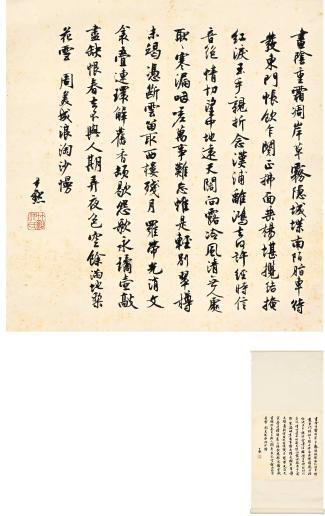 晝陰重霜凋岸草霧隱城堞南陌脂車待
發東門帳飲乍闋正拂面垂楊堪攬結掩
紅淚玉手親折念漢浦離鴻去何許經時信
音絕情切望中地遠天闊向露冷風清無人處
耿〻寒漏咽嗟萬事難忘惟是輕別翠樽
未竭憑斷雲留取西樓殘月羅帶光消文
衾疊連環解舊香頓歇怨歌永瓊壺敲
盡缺恨春去不與人期弄夜色空餘滿地梨
花雪 周美成浪淘沙慢
尹默